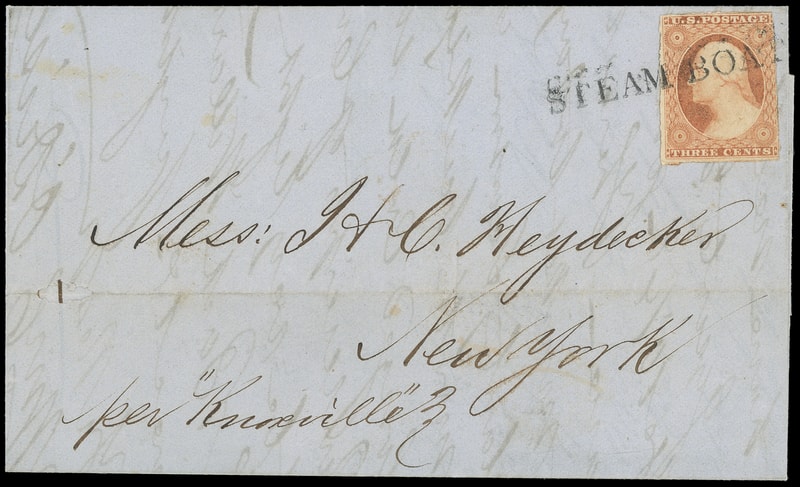 U.S. POSTAGE
STEAM BOAT
THREE CENTS
Mess: J & C. Heydecker
New York
per "Knoxville"